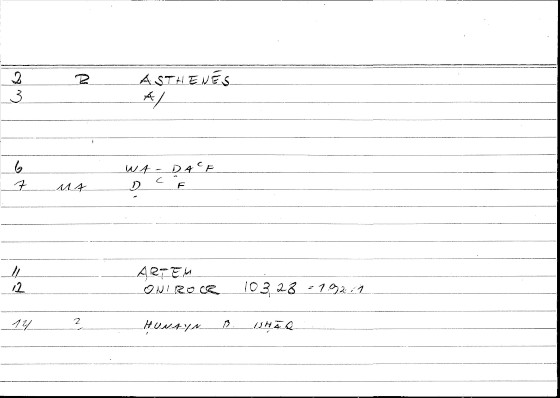 2 B ASTHENĒS
3 A/
6 WA - ḌAʿF
7 MA Ḍ ʿ F
11 ARTEM
12 ONIROCR 103,28 = 192:1
14 2, ḤUNAYN B ISḤĀQ